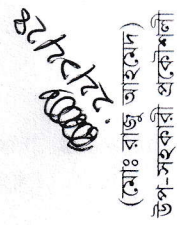 (মোঃ রাজু আহমেদ)
উপ-সহকারী প্রকৌশলী